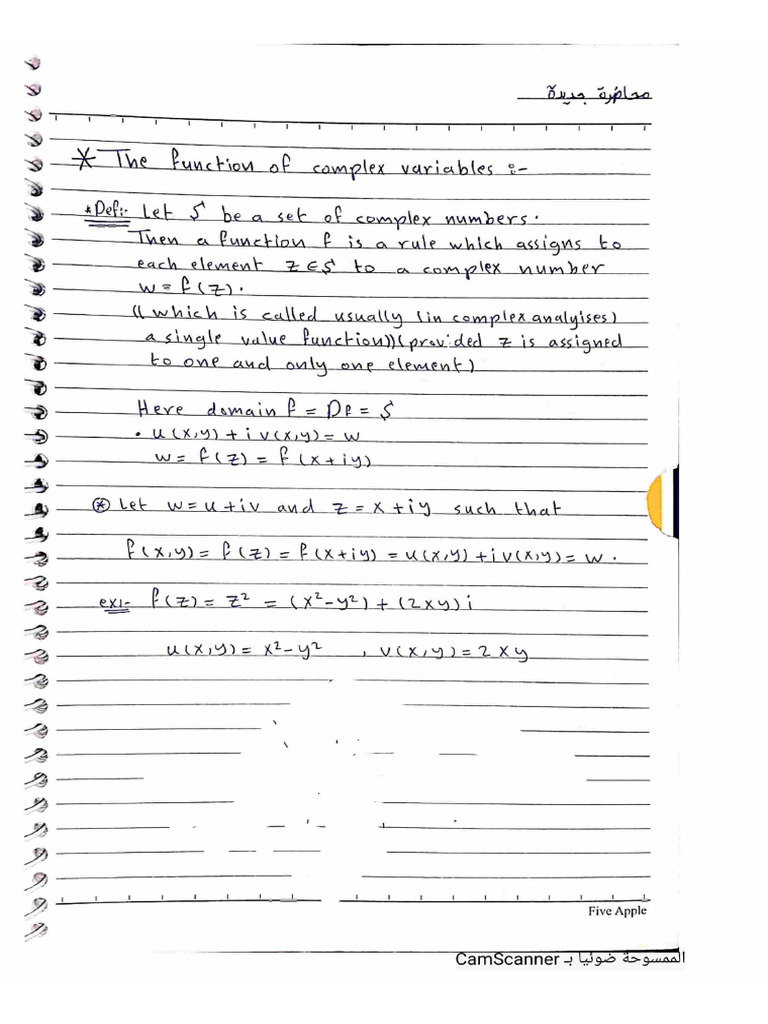 محاضرة جديدة
* The function of complex variables :-
*Def:- Let S be a set of complex numbers.
Then a function f is a rule which assigns to
each element z ∈ S to a complex number
w = f(z).
((which is called usually (in complex analyises)
a single value function))(provided z is assigned
to one and only one element)
Here domain f = Df = S
• u(x,y) + i v(x,y) = w
w = f(z) = f(x+iy)
⊛ Let w = u + iv and z = x + iy such that
f(x,y) = f(z) = f(x+iy) = u(x,y) + i v(x,y) = w.
ex:- f(z) = z² = (x² - y²) + (2xy) i
u(x,y) = x² - y² , v(x,y) = 2xy
Five Apple
الممسوحة ضوئيا بـ CamScanner